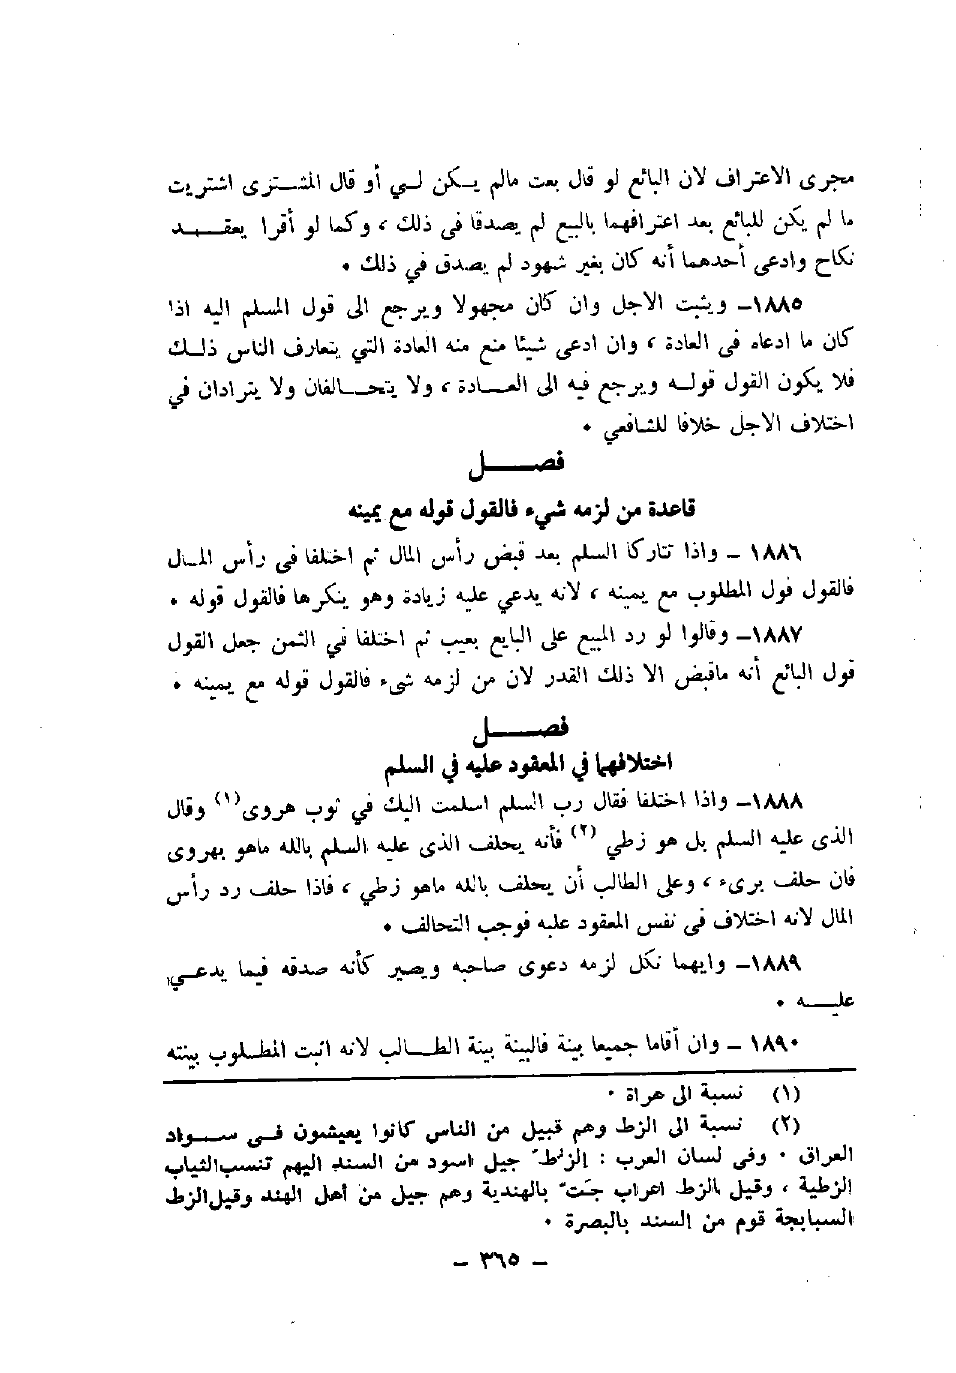 مجرى الاعتراف لان البائع لو قال بعت مالم يكن لي أو قال المشترى اشتريت
ما لم يكن للبائع بعد اعترافهما بالبيع لم يصدقا فى ذلك ، وكما لو أقرا بعقد
نكاح وادعى أحدهما أنه كان بغير شهود لم يصدق في ذلك •
١٨٨٥ـ ويثبت الاجل وان كان مجهولا ويرجع الى قول المسلم اليه اذا
كان ما ادعاه فى العادة ، وان ادعى شيئا منع منه العادة التي يتعارف الناس ذلك
فلا يكون القول قوله ويرجع فيه الى العادة ، ولا يتحالفان ولا يترادان في
اختلاف الاجل خلافا للشافعي •
فصل
قاعدة من لزمه شيء فالقول قوله مع يمينه
١٨٨٦ ـ واذا تتاركا السلم بعد قبض رأس المال ثم اختلفا فى رأس المال
فالقول قول المطلوب مع يمينه ، لانه يدعي عليه زيادة وهو ينكرها فالقول قوله •
١٨٨٧ـ وقالوا لو رد المبيع على البايع بعيب ثم اختلفا في الثمن جعل القول
قول البائع أنه ماقبض الا ذلك القدر لان من لزمه شىء فالقول قوله مع يمينه •
فصل
اختلافهما في المعقود عليه في السلم
١٨٨٨ـ واذا اختلفا فقال رب السلم اسلمت اليك في ثوب هروى(١) وقال
الذى عليه السلم بل هو زطي (٢) فأنه يحلف الذى عليه السلم بالله ماهو بهروى
فان حلف برىء ، وعلى الطالب أن يحلف بالله ماهو زطي ، فاذا حلف رد رأس
المال لانه اختلاف فى نفس المعقود عليه فوجب التحالف •
١٨٨٩ـ وايهما نكل لزمه دعوى صاحبه ويصير كأنه صدقه فيما يدعي
عليه •
١٨٩٠ ـ وان أقاما جميعا بينة فالبينة بينة الطالب لانه اثبت المطلوب بينته
(١) نسبة الى هراة •
(٢) نسبة الى الزط وهم قبيل من الناس كانوا يعيشون في سواد
العراق • وفى لسان العرب : الزط جيل اسود من السند اليهم تنسب الثياب
الزطية ، وقيل الزط اعراب جت بالهندية وهم جيل من أهل الهند وقيل الزط
السبابجة قوم من السند بالبصرة •
ـ ٣٦٥ ـ